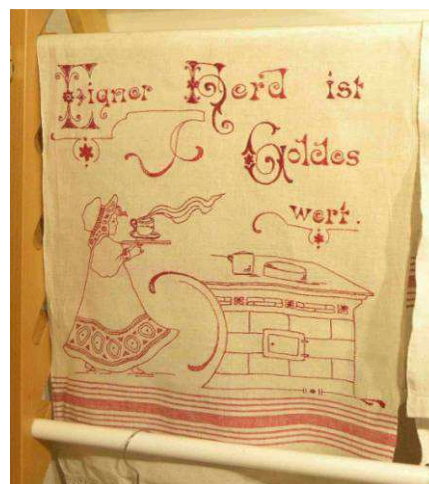 Eigner Herd ist
Goldes
wert.